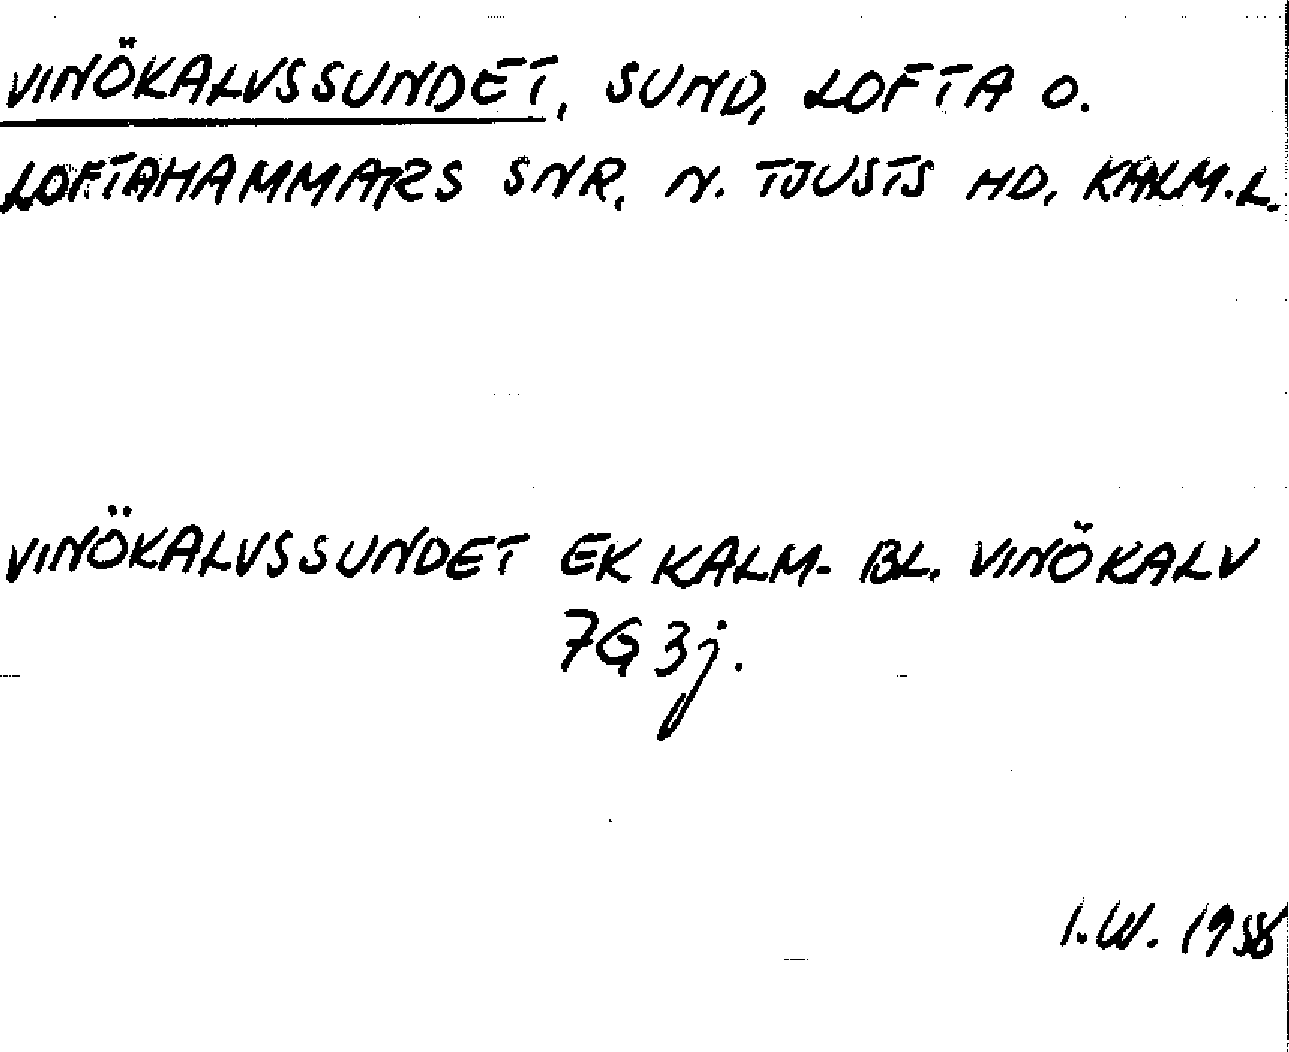 VINÖKALVSSUNDET, SUND, LOFTA O.
LOFTAHAMMARS SNR, N. TJUSTS HD, KALM.L.
VINÖKALVSSUNDET EK KALM. BL. VINÖKALV
7G 3j.
I.W. 1958